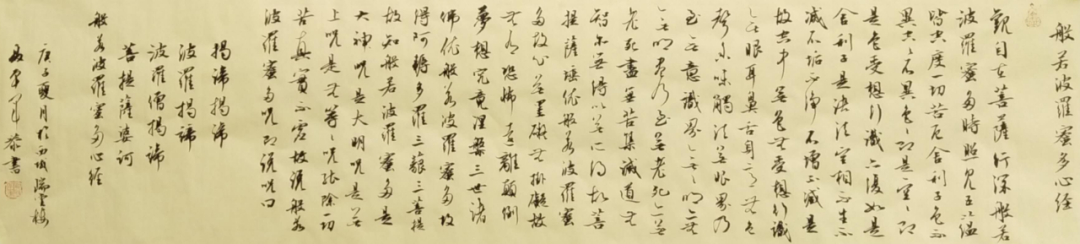 般若波羅蜜多心経
觀自在菩薩行深般若
波羅蜜多時照見五蘊
皆空度一切苦厄舍利子色不
異空空不異色色即是空空即
是色受想行識亦復如是
舍利子是諸法空相不生不
滅不垢不淨不增不減是
故空中無色無受想行識
無眼耳鼻舌身意無色
聲香味觸法無眼界乃
至無意識界無無明亦無
無明盡乃至無老死亦無
老死盡無苦集滅道無
智亦無得以無所得故菩
提薩埵依般若波羅蜜
多故心無罣礙無罣礙故
無有恐怖遠離顛倒
夢想究竟涅槃三世諸
佛依般若波羅蜜多故
得阿耨多羅三藐三菩提
故知般若波羅蜜多是
大神咒是大明咒是無
上咒是無等等咒能除一切
苦真實不虛故說般若
波羅蜜多咒即說咒曰
揭諦揭諦
波羅揭諦
波羅僧揭諦
菩提薩婆訶
般若波羅蜜多心経
庚子夏月於西城瑞雲樓
恭書